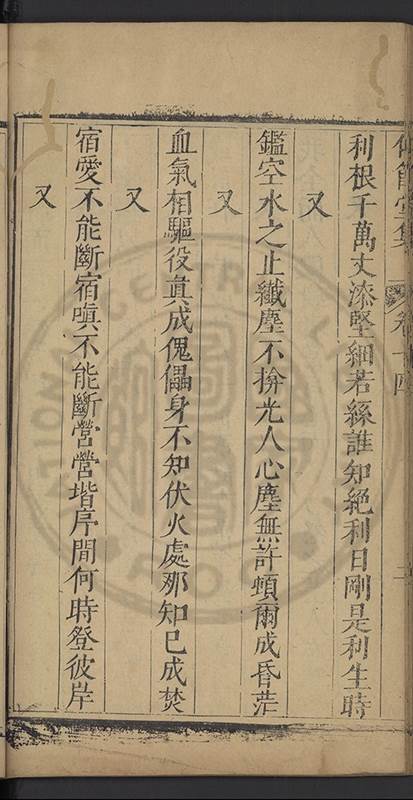 仰節堂集 卷十四
利根千萬丈漆堅細若絲誰知絕利日剛是利生時
又
鑑空水之止纖塵不揜光人心塵無許頓爾成昏茫
又
血氣相驅役眞成傀儡身不知伏火處那知已成焚
又
宿愛不能斷宿嗔不能斷營營堦戽間何時登彼岸
又